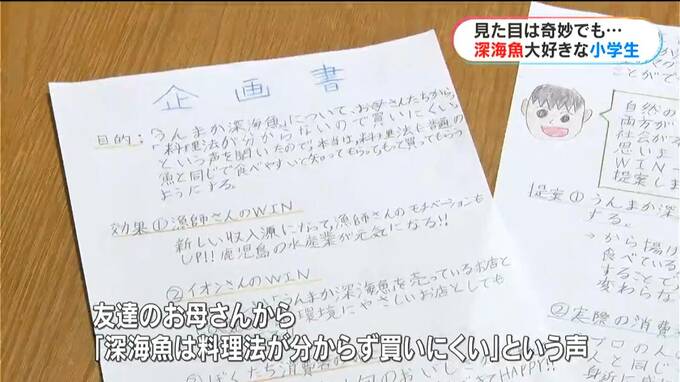 見た目は奇妙でも…
深海魚大好きな小学生
企画書
目的：「うんまか深海魚」について、お母さんたちから、
「料理法が分からないので買いにくい」
という声を聞いたので、本当は、料理法は普通の
魚と同じで食べやすいと知ってもらって、もっと買ってもらう
ようにする。
効果①漁師さんのWIN
新しい収入源になって、漁師さんのモチベーションも
UP!!鹿児島の水産業が元気になる!!
②イオンさんのWIN
うんまか深海魚を売っているお店と
環境にやさしいお店としても
HAPPY!!
自然の
両方が
社会が
思いま
WIN-
提案しま
提案①うんまか深
する。
→から揚げ
食べている
することで
変わらな
②実際の消費
プロの人
と同じ
身近に
友達のお母さんから
「深海魚は料理法が分からず買いにくい」という声